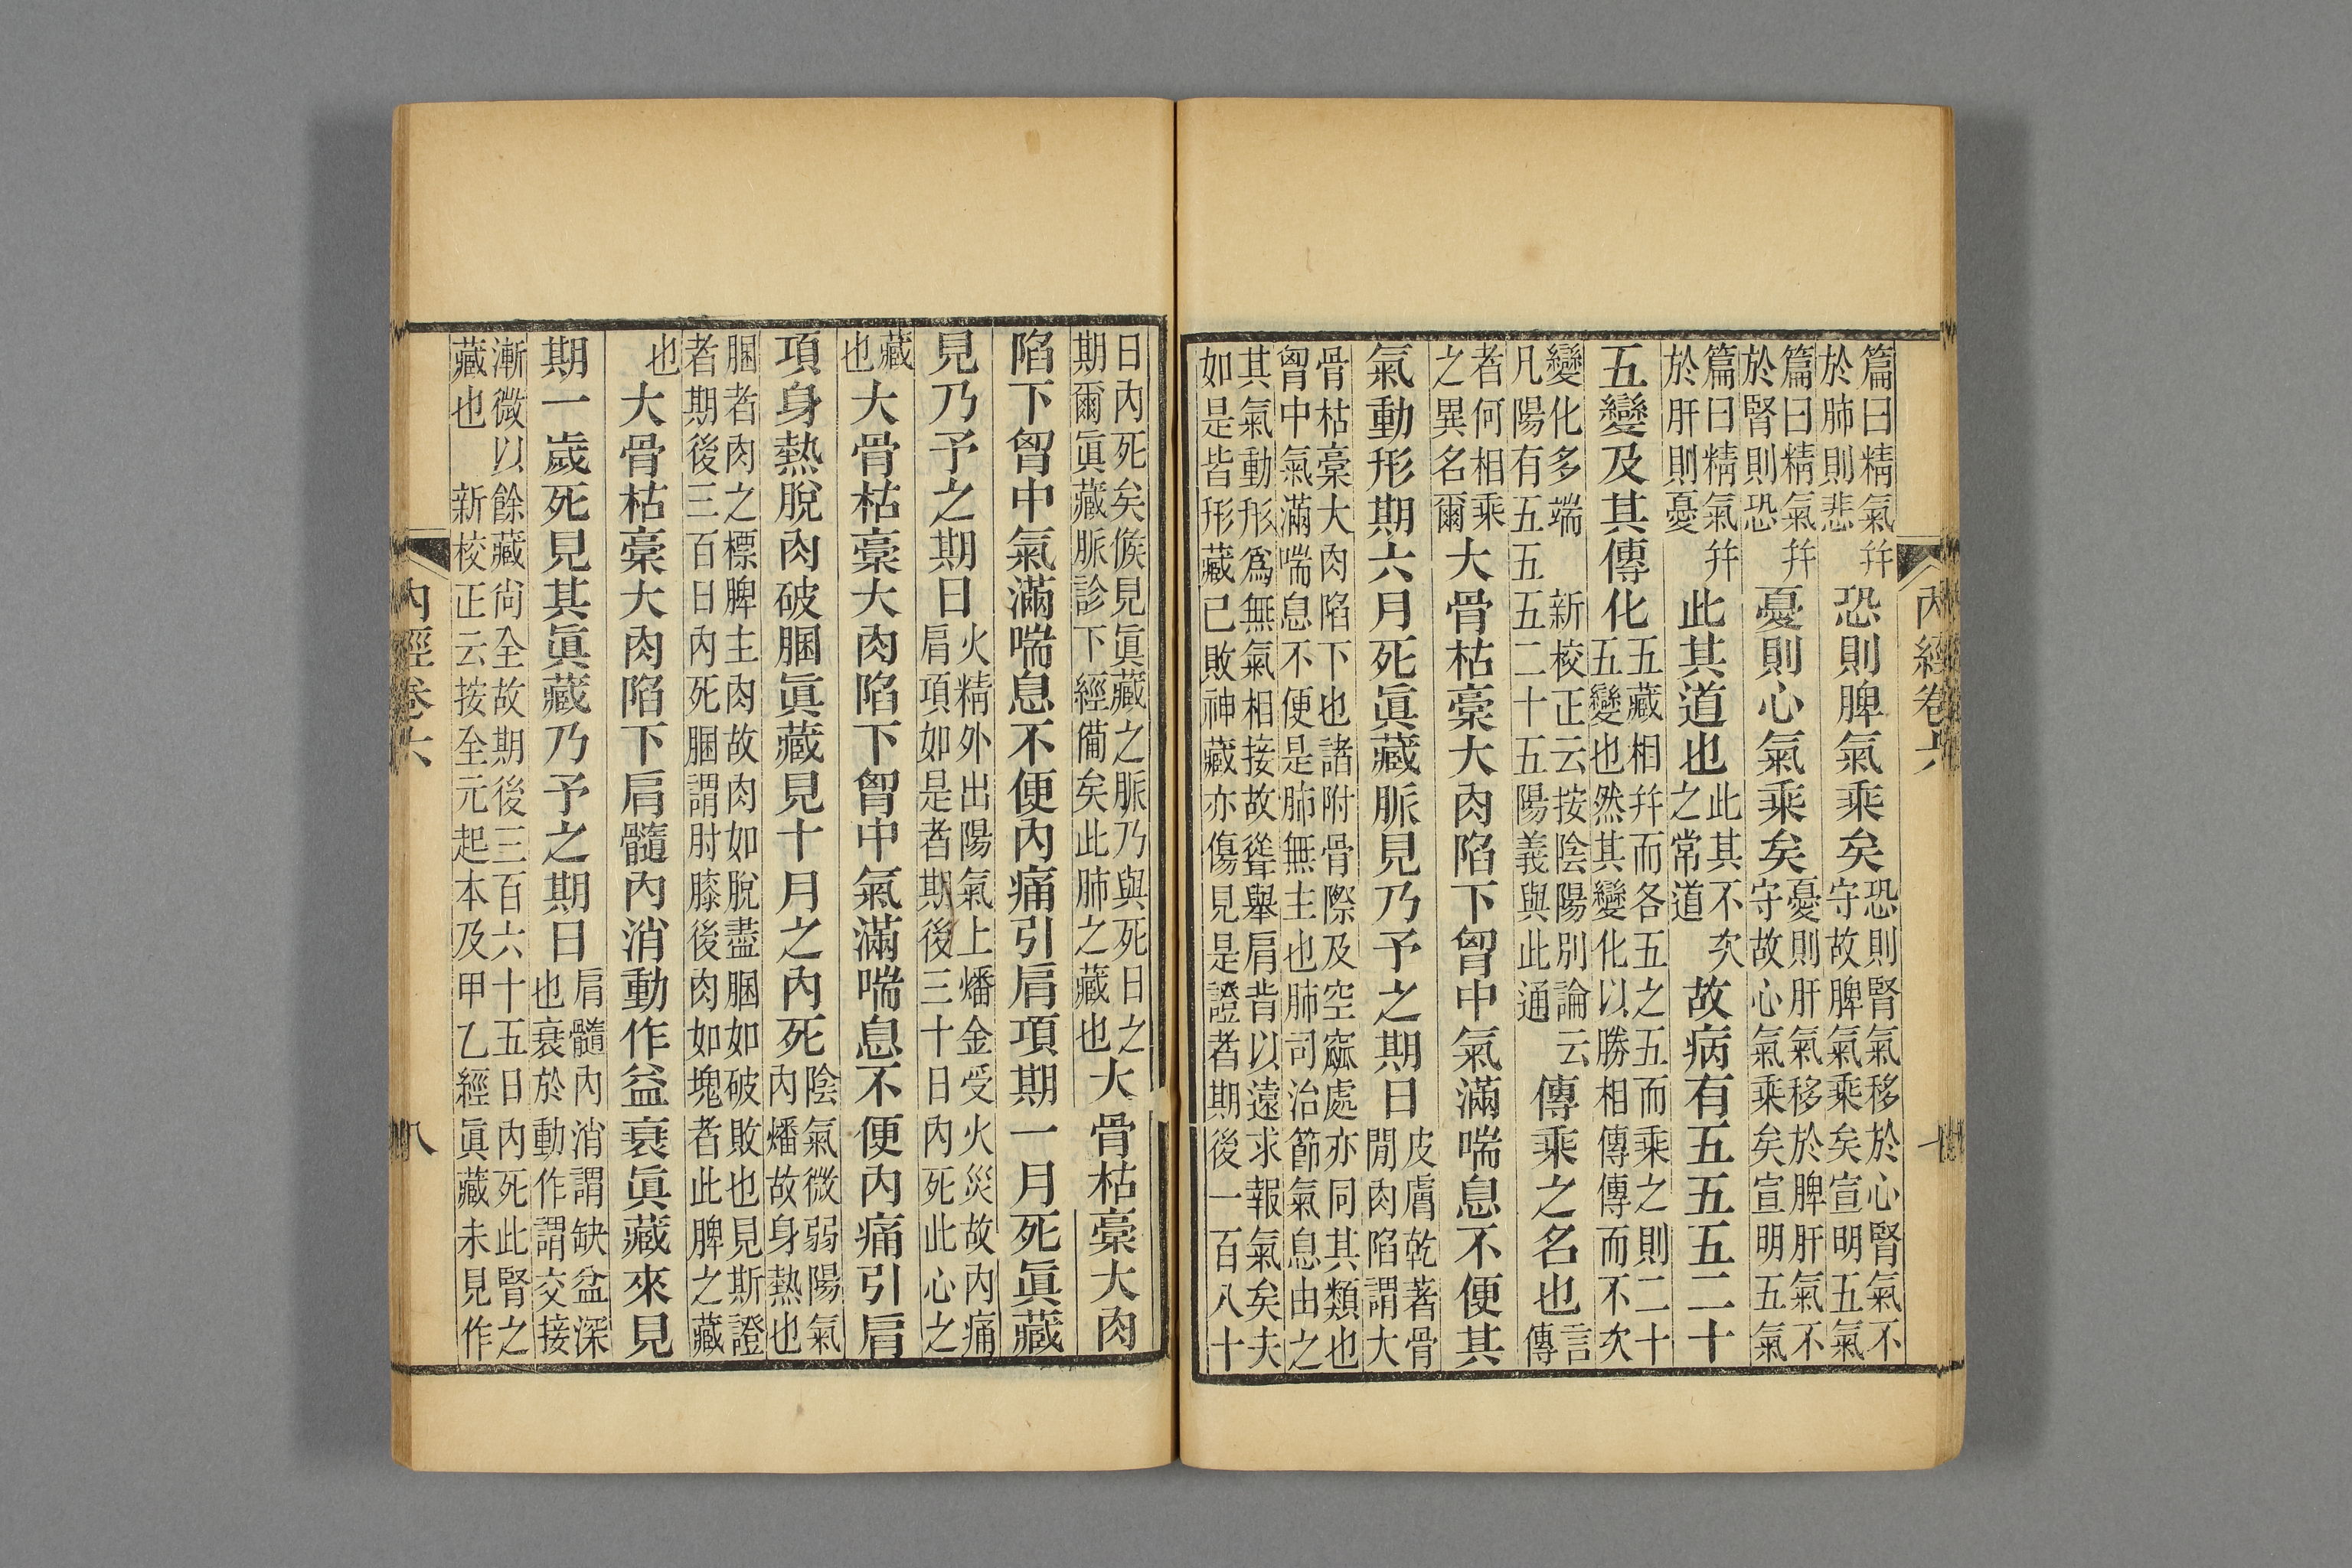 內經卷六
篇曰精氣并於肺則悲恐則脾氣乘矣恐則腎氣移於心腎氣不守故脾氣乘矣宣明五氣
篇曰精氣并於腎則恐憂則心氣乘矣憂則肝氣移於脾肝氣不守故心氣乘矣宣明五氣
篇曰精氣并於肝則憂此其道也此其不次之常道故病有五五五二十
五變及其傳化五藏相并而各五之五而乘之則二十五變也然其變化以勝相傳傳而不次
變化多端　新校正云按陰陽別論云凡陽有五五五五二十五陽義與此通傳乘之名也言傳
者何相乘之異名爾大骨枯槀大肉陷下胷中氣滿喘息不便其
氣動形期六月死眞藏脈見乃予之期日皮膚乾著骨閒肉陷謂大
骨枯槀大肉陷下也諸附骨際及空窳處亦同其類也胷中氣滿喘息不便是肺無主也肺司治節氣息由之
其氣動形爲無氣相接故聳舉肩背以遠求報氣矣夫如是皆形藏已敗神藏亦傷見是證者期後一百八十
日內死矣候見眞藏之脈乃與死日之期爾眞藏脈診下經備矣此肺之藏也大骨枯槀大肉
陷下胷中氣滿喘息不便內痛引肩項期一月死眞藏
見乃予之期日火精外出陽氣上燔金受火災故內痛肩項如是者期後三十日內死此心之
藏也大骨枯槀大肉陷下胷中氣滿喘息不便內痛引肩
項身熱脫肉破䐃眞藏見十月之內死陰氣微弱陽氣內燔故身熱也
䐃者肉之標脾主肉故肉如脫盡䐃如破敗也見斯證者期後三百日內死䐃謂肘膝後肉如塊者此脾之藏
也大骨枯槀大肉陷下肩髓內消動作益衰眞藏來見
期一歲死見其眞藏乃予之期日肩髓內消謂缺盆深也衰於動作謂交接
漸微以餘藏尙全故期後三百六十五日內死此腎之藏也　新校正云按全元起本及甲乙經眞藏未見作
內經卷六
八